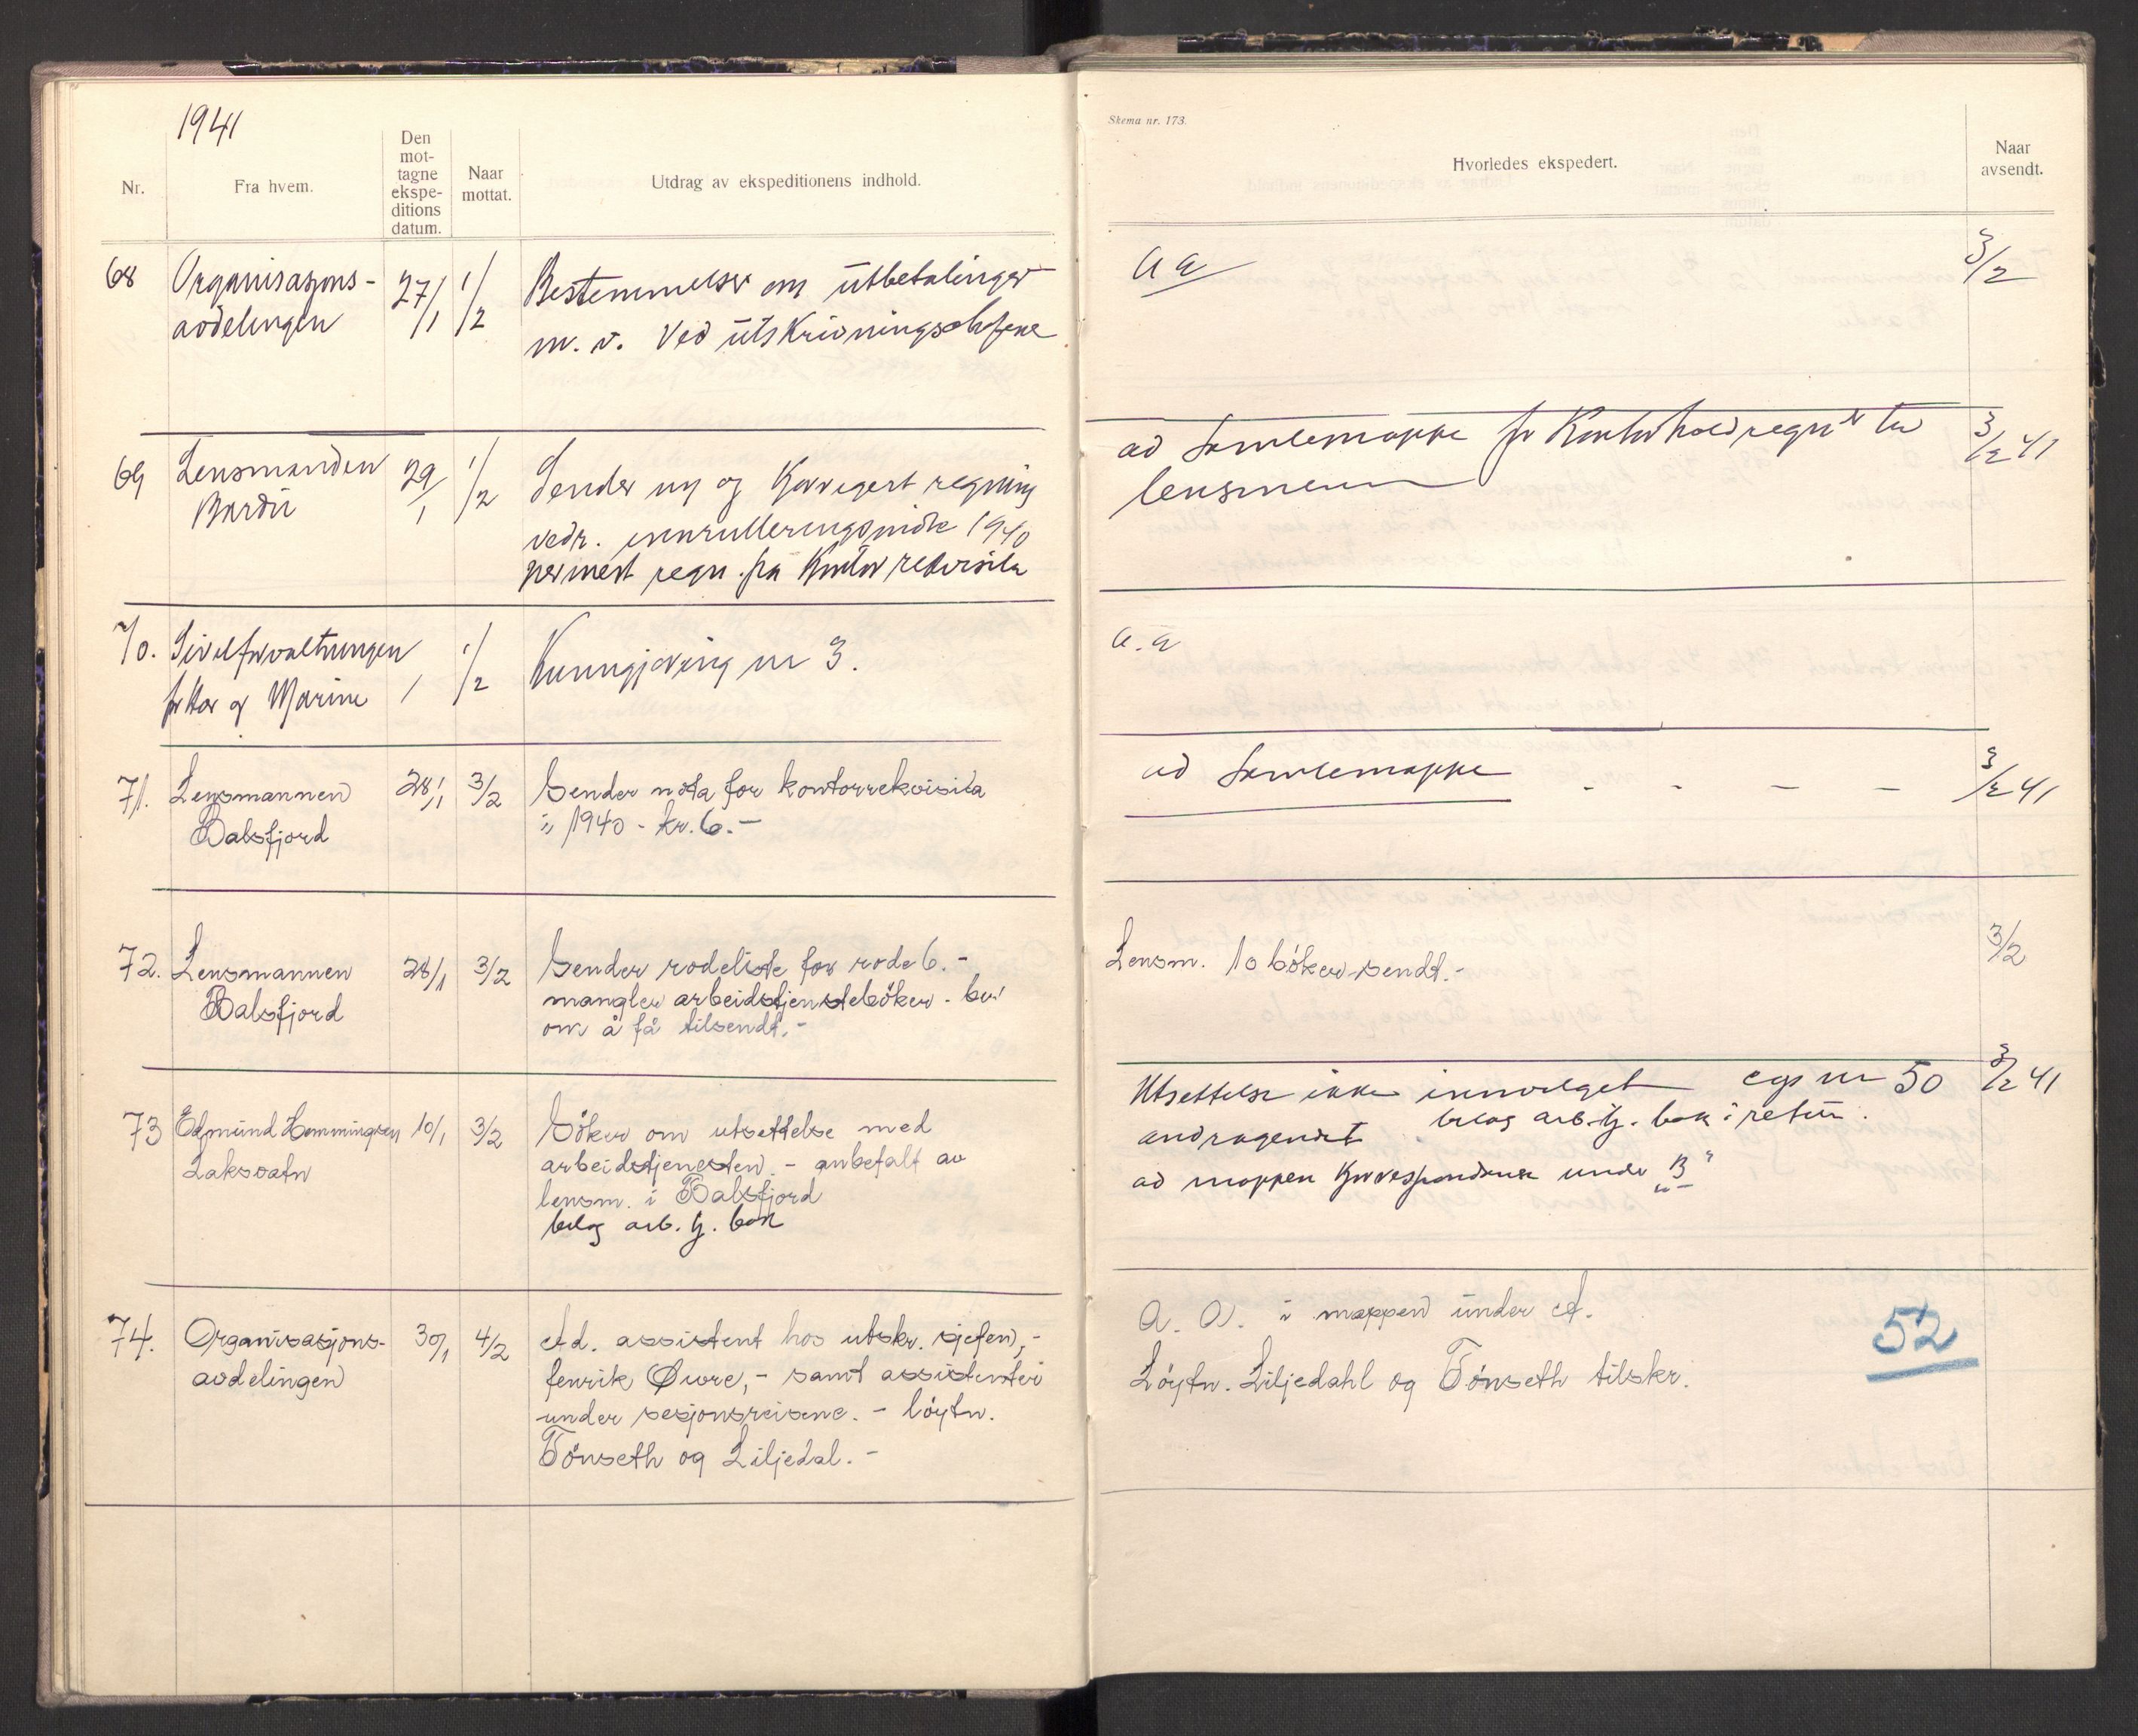 1941
Nr.
Fra hvem.
Den
mot-
tagne
ekspe-
ditions
datum.
Naar
mottat.
Utdrag av ekspeditionens indhold.
68
Organisasjons-
avdelingen
27/1
1/2
Bestemmelser om utbetalinger
m. v. ved utskrivningssjefene
69
Lensmanden
Bardu
29/1
1/2
Sender ny og korrigert regning
vedr. innrulleringsmøte 1940
nermest regn. på kontorrekvisita
70.
Sivilforvaltningen
for Hær og Marine
/
1/2
Kunngjøring nr 3.
71.
Lensmannen
Balsfjord
28/1
3/2
Sender nota for kontorrekvisita
i 1940 - kr. 6. -
72.
Lensmannen
Balsfjord
28/1
3/2
Sender rodeliste for rode 6. -
mangler arbeidstjenestebøker - ber
om å få tilsendt. -
73
Edmund Hemmingsen
Laksvatn
10/1
3/2
Søker om utsettelse med
arbeidstjenesten. - anbefalt av
lensm. i Balsfjord
bilag arb. tj. bok
74.
Organisasjons-
avdelingen
30/1
4/2
Ad. assistent hos utskr. sjefen, -
fenrik Øwre, - samt assistenter
under sesjonsreisene. - løytn.
Tönseth og Liljedal. -
Skema nr. 173.
Hvorledes ekspedert.
Naar
avsendt.
a a
3/2
ad samlemappe for Kontorhold regn. fra
lensmenn
3/2 41
a. a
ad samlemappe - - - -
3/2 41
Lensm. 10 bøker sendt. -
3/2
Utsettelse ikke innvilget
nr 50
3/2 41
andragendet
bilag arb. tj. bok i retur.
ad mappen Korrespondanse under "B"
a. a. i mappen under A.
Löytn. Liljedahl og Tönseth tilskr.
52